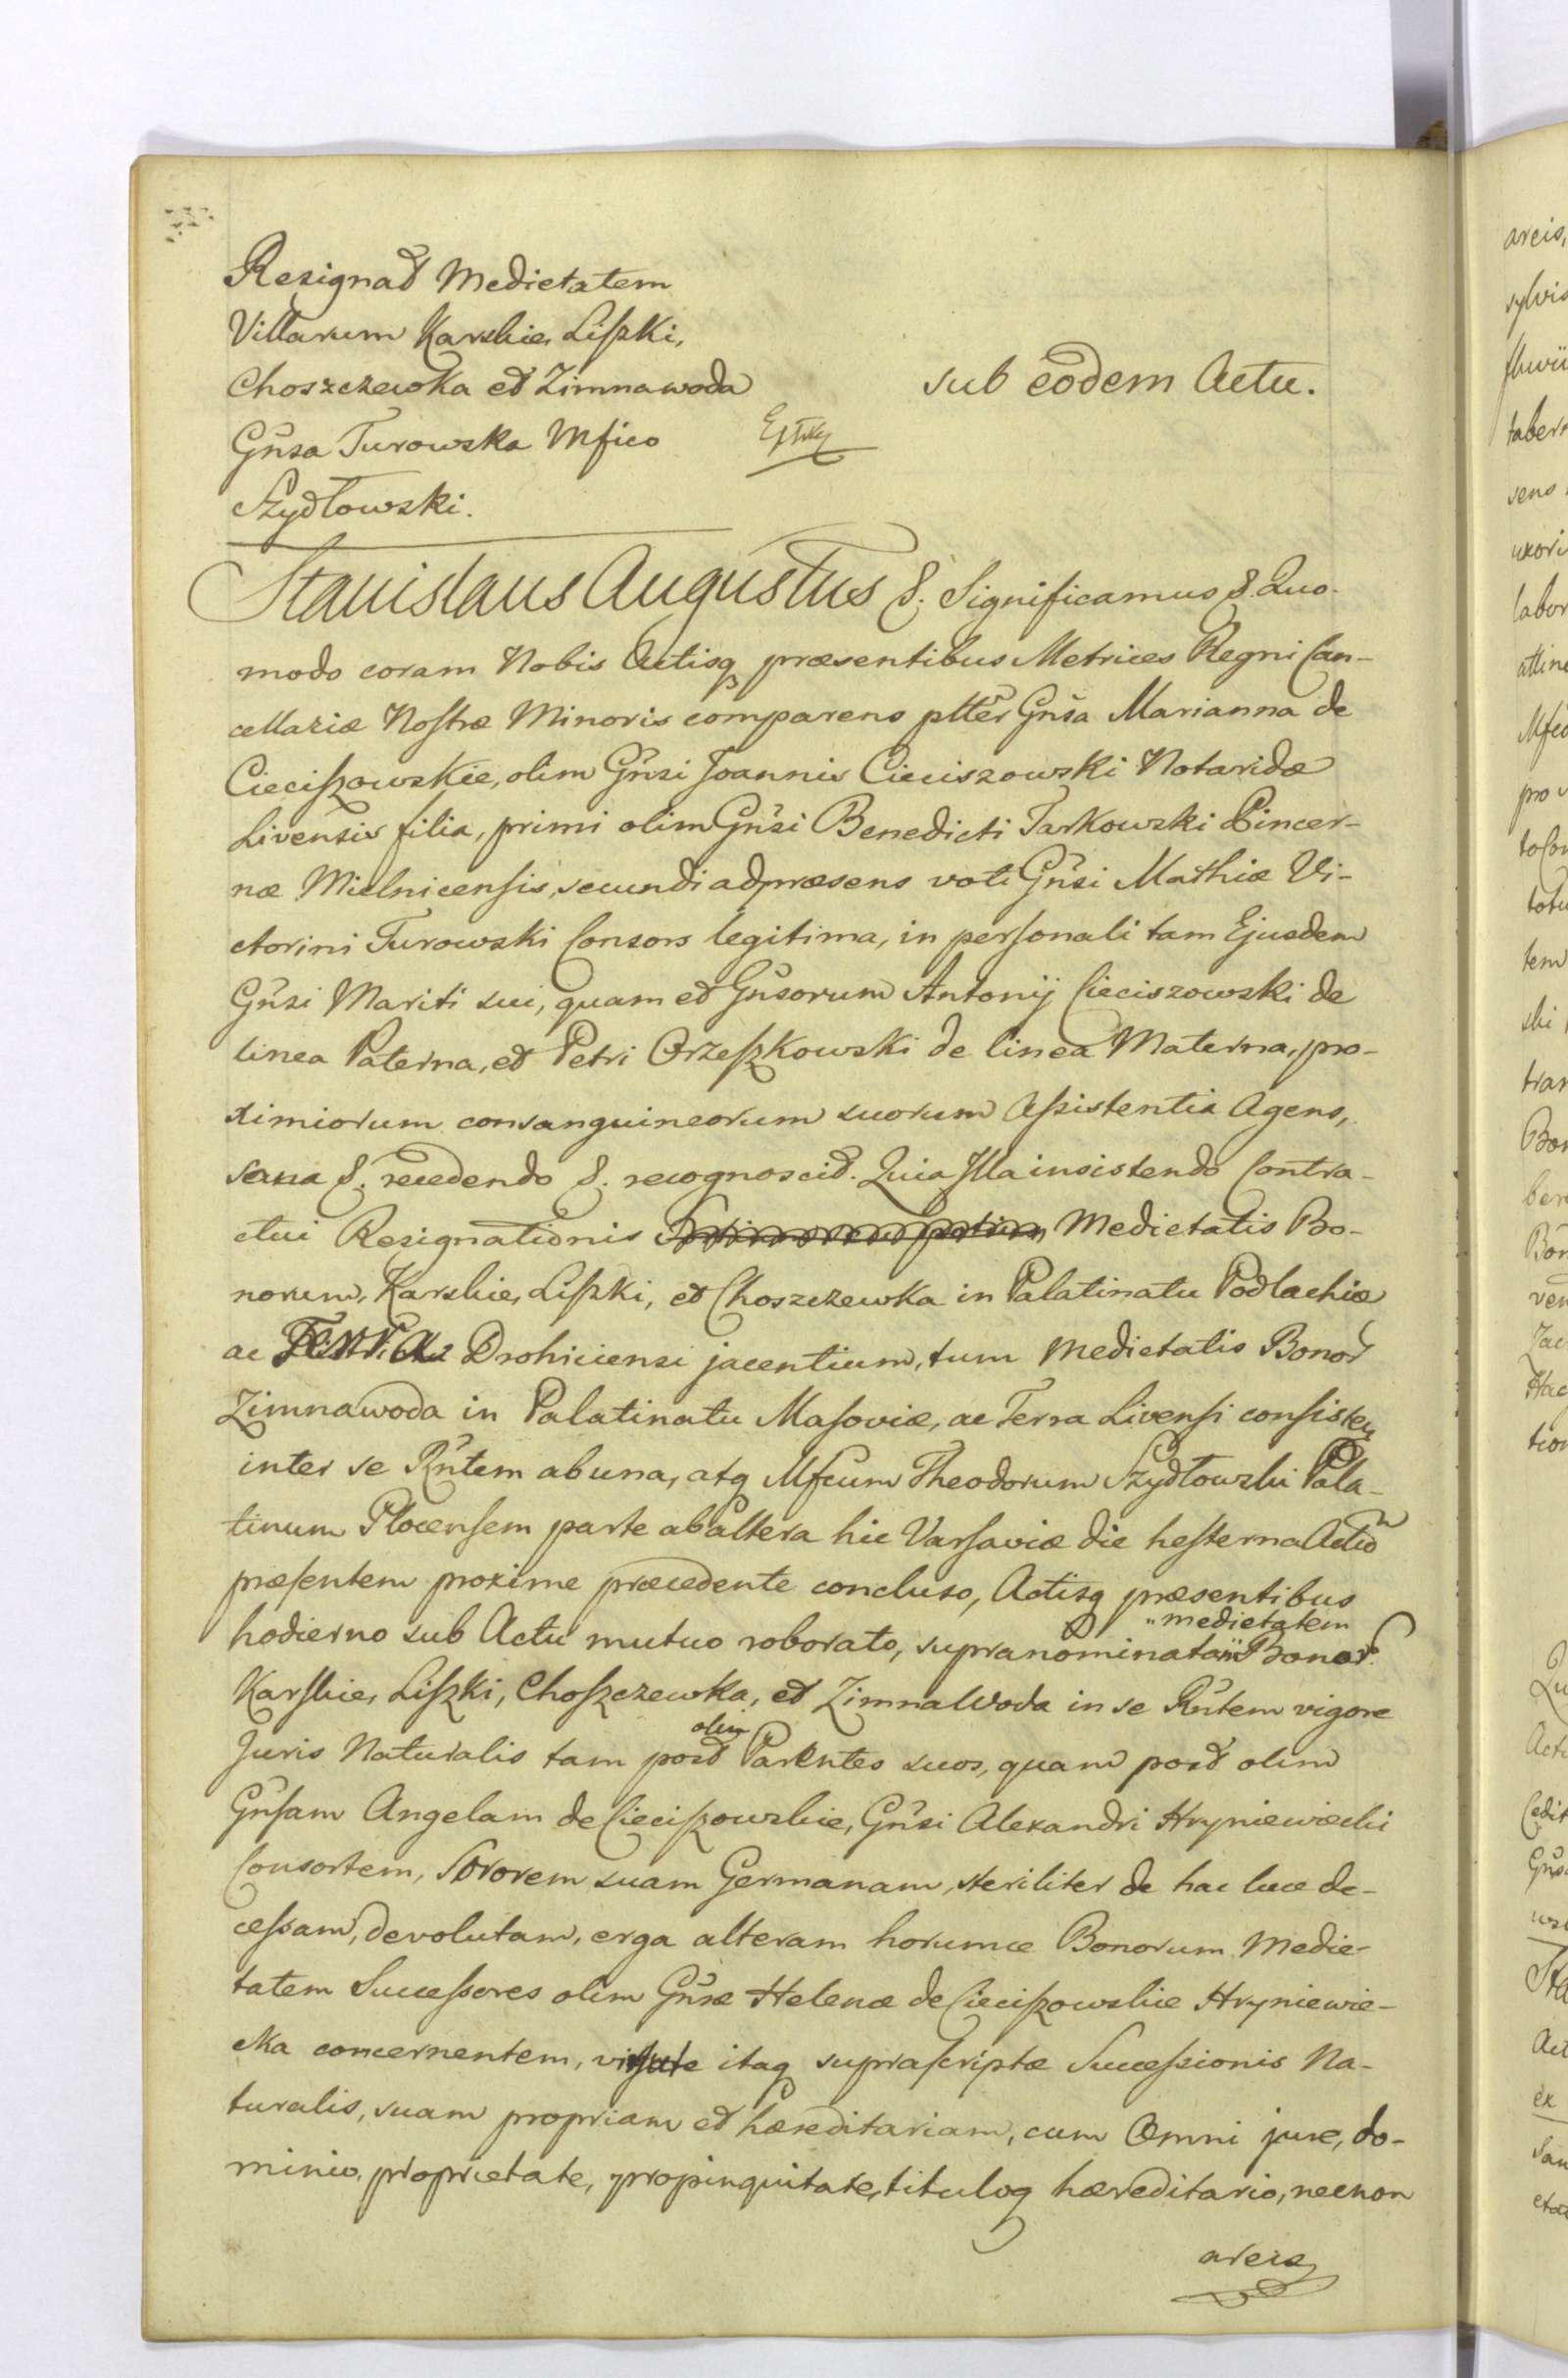 Resignat Medietatem
Villarum Karskie, Liszki,
Choszczewka et Zimnawoda
sub eodem Actu.
Gnsa Turowska Mfico
Szydłowski.
Stanislaus Augustus &. Significamus &. Quo-
modo coram Nobis Actisq præsentibus Metrices Regni Can-
cellariæ Nostræ Minoris comparens pltter Gnsa Marianna de
Cieciszowskie, olim Gnsi Joannis Cieciszowski Notaridæ
Livensis filia, primi olim Gnsi Benedicti Tarkowski Pincer-
næ Mielnicensis, secundi ad præsens voti Gnsi Mathiæ Vi-
ctorini Turowski Consors legitima, in personali tam Ejusdem
Gnsi Mariti sui, quam et Gnsorum Antonij Cieciszowski de
linea Paterna, et Petri Orzeszkowski de linea Materna, pro-
ximiorum consanguineorum suorum Assistentia Agens,
sana &. recedendo &. recognoscit. Quia Illa insistendo Contra-
ctui Resignationis Medietatis Bo-
norum, Karskie, Liszki, et Choszczewka in Palatinatu Podlachiæ
ac Terra Drohiciensi jacentium, tum Medietatis Bonor
Zimnawoda in Palatinatu Masoviæ, ac Terra Livensi consisten
inter se Rntem ab una, atq Mfcum Theodorum Szydłowski Pala-
tinum Plocensem parte ab altera hic Varsaviæ die hesterna Actum
præsentem proxime præcedente concluso, Actisq præsentibus
hodierno sub Actu mutuo roborato, supranominatam medietatem Bonor.
Karskie, Liszki, Choszczewka, et ZimnaWoda in se Rntem vigore
Juris Naturalis tam post olim Parentes suos, quam post olim
Gnsam Angelam de Cieciszowskie, Gnsi Alexandri Hryniewiecki
Consortem, Sororem suam Germanam, steriliter de hac luce de-
cessam, devolutam, erga alteram horumce Bonorum Medie-
tatem Successores olim Gnsæ Helenæ de Cieciszowskie Hryniewie-
cka concernentem, virtute itaq suprascriptæ Successionis Na-
turalis, suam propriam et hæreditariam, cum Omni jure, do-
minio, proprietate, propinquitate, tituloq hæreditario, necnon
areis,